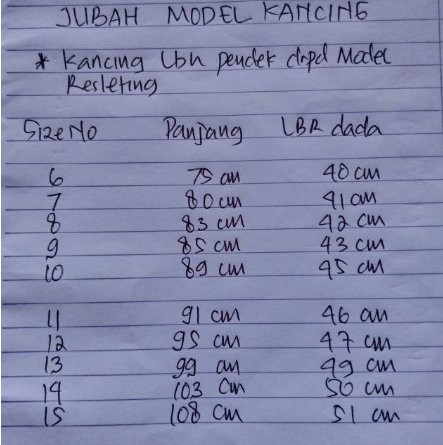 JUBAH MODEL KANCING
* Kancing Lbh pendek drpd Model
Resleting
Size No Panjang LBR dada
6 75 cm 40 cm
7 80 cm 41 cm
8 83 cm 42 cm
9 85 cm 43 cm
10 89 cm 45 cm
11 91 cm 46 cm
12 95 cm 47 cm
13 99 cm 49 cm
14 103 cm 50 cm
15 108 cm 51 cm